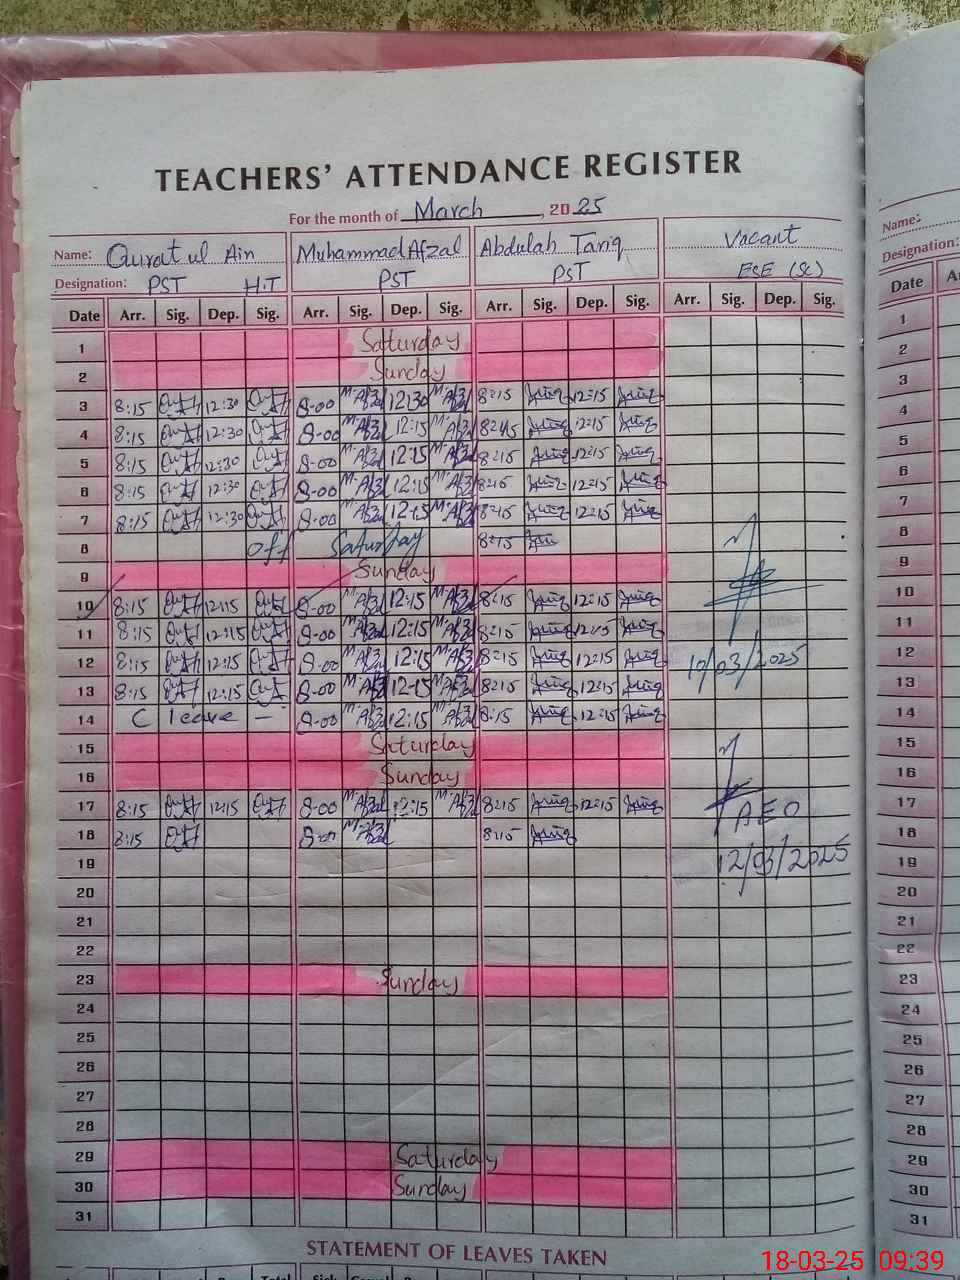 TEACHERS' ATTENDANCE REGISTER
For the month of March, 2025
Name: Qurat ul Ain Muhammad Afzal Abdulah Tariq Vacant
Designation: PST H.T PST PST ESE (Sc)
Date Arr. Sig. Dep. Sig. Arr. Sig. Dep. Sig. Arr. Sig. Dep. Sig. Arr. Sig. Dep. Sig.
1 Saturday
2 Sunday
3 8:15 12:30 8-00 M.Afzal 12:30 M.Afzal 8:15 12:15
4 8:15 12:30 8-00 M.Afzal 12:15 M.Afzal 8:15 12:15
5 8:15 12:30 8-00 M.Afzal 12:15 M.Afzal 8:15 12:15
6 8:15 12:30 8-00 M.Afzal 12:15 M.Afzal 8:15 12:15
7 8:15 12:30 8-00 M.Afzal 12:15 M.Afzal 8:15 12:15
8 off Saturday 8:15
9 Sunday
10 8:15 12:15 8-00 M.Afzal 12:15 M.Afzal 8:15 12:15
11 8:15 12:15 8-00 M.Afzal 12:15 M.Afzal 8:15 12:15
12 8:15 12:15 8-00 M.Afzal 12:15 M.Afzal 8:15 12:15 /03/2025
13 8:15 12:15 8-00 M.Afzal 12-15 M.Afzal 8:15 12:15
14 C leave - 8-00 M.Afzal 12:15 M.Afzal 8:15 12:15
15 Saturday
16 Sunday
17 8:15 12:15 8-00 M.Afzal 12:15 M.Afzal 8:15 12:15 AEO
18 8:15 8-00 M.Afzal 8:15
19 12/03/2025
20
21
22
23 Sunday
24
25
26
27
28
29 Saturday
30 Sunday
31
STATEMENT OF LEAVES TAKEN
Name:
Designation:
Date
1
2
3
4
5
6
7
8
9
10
11
12
13
14
15
16
17
18
19
20
21
22
23
24
25
26
27
28
29
30
31
18-03-25 09:39